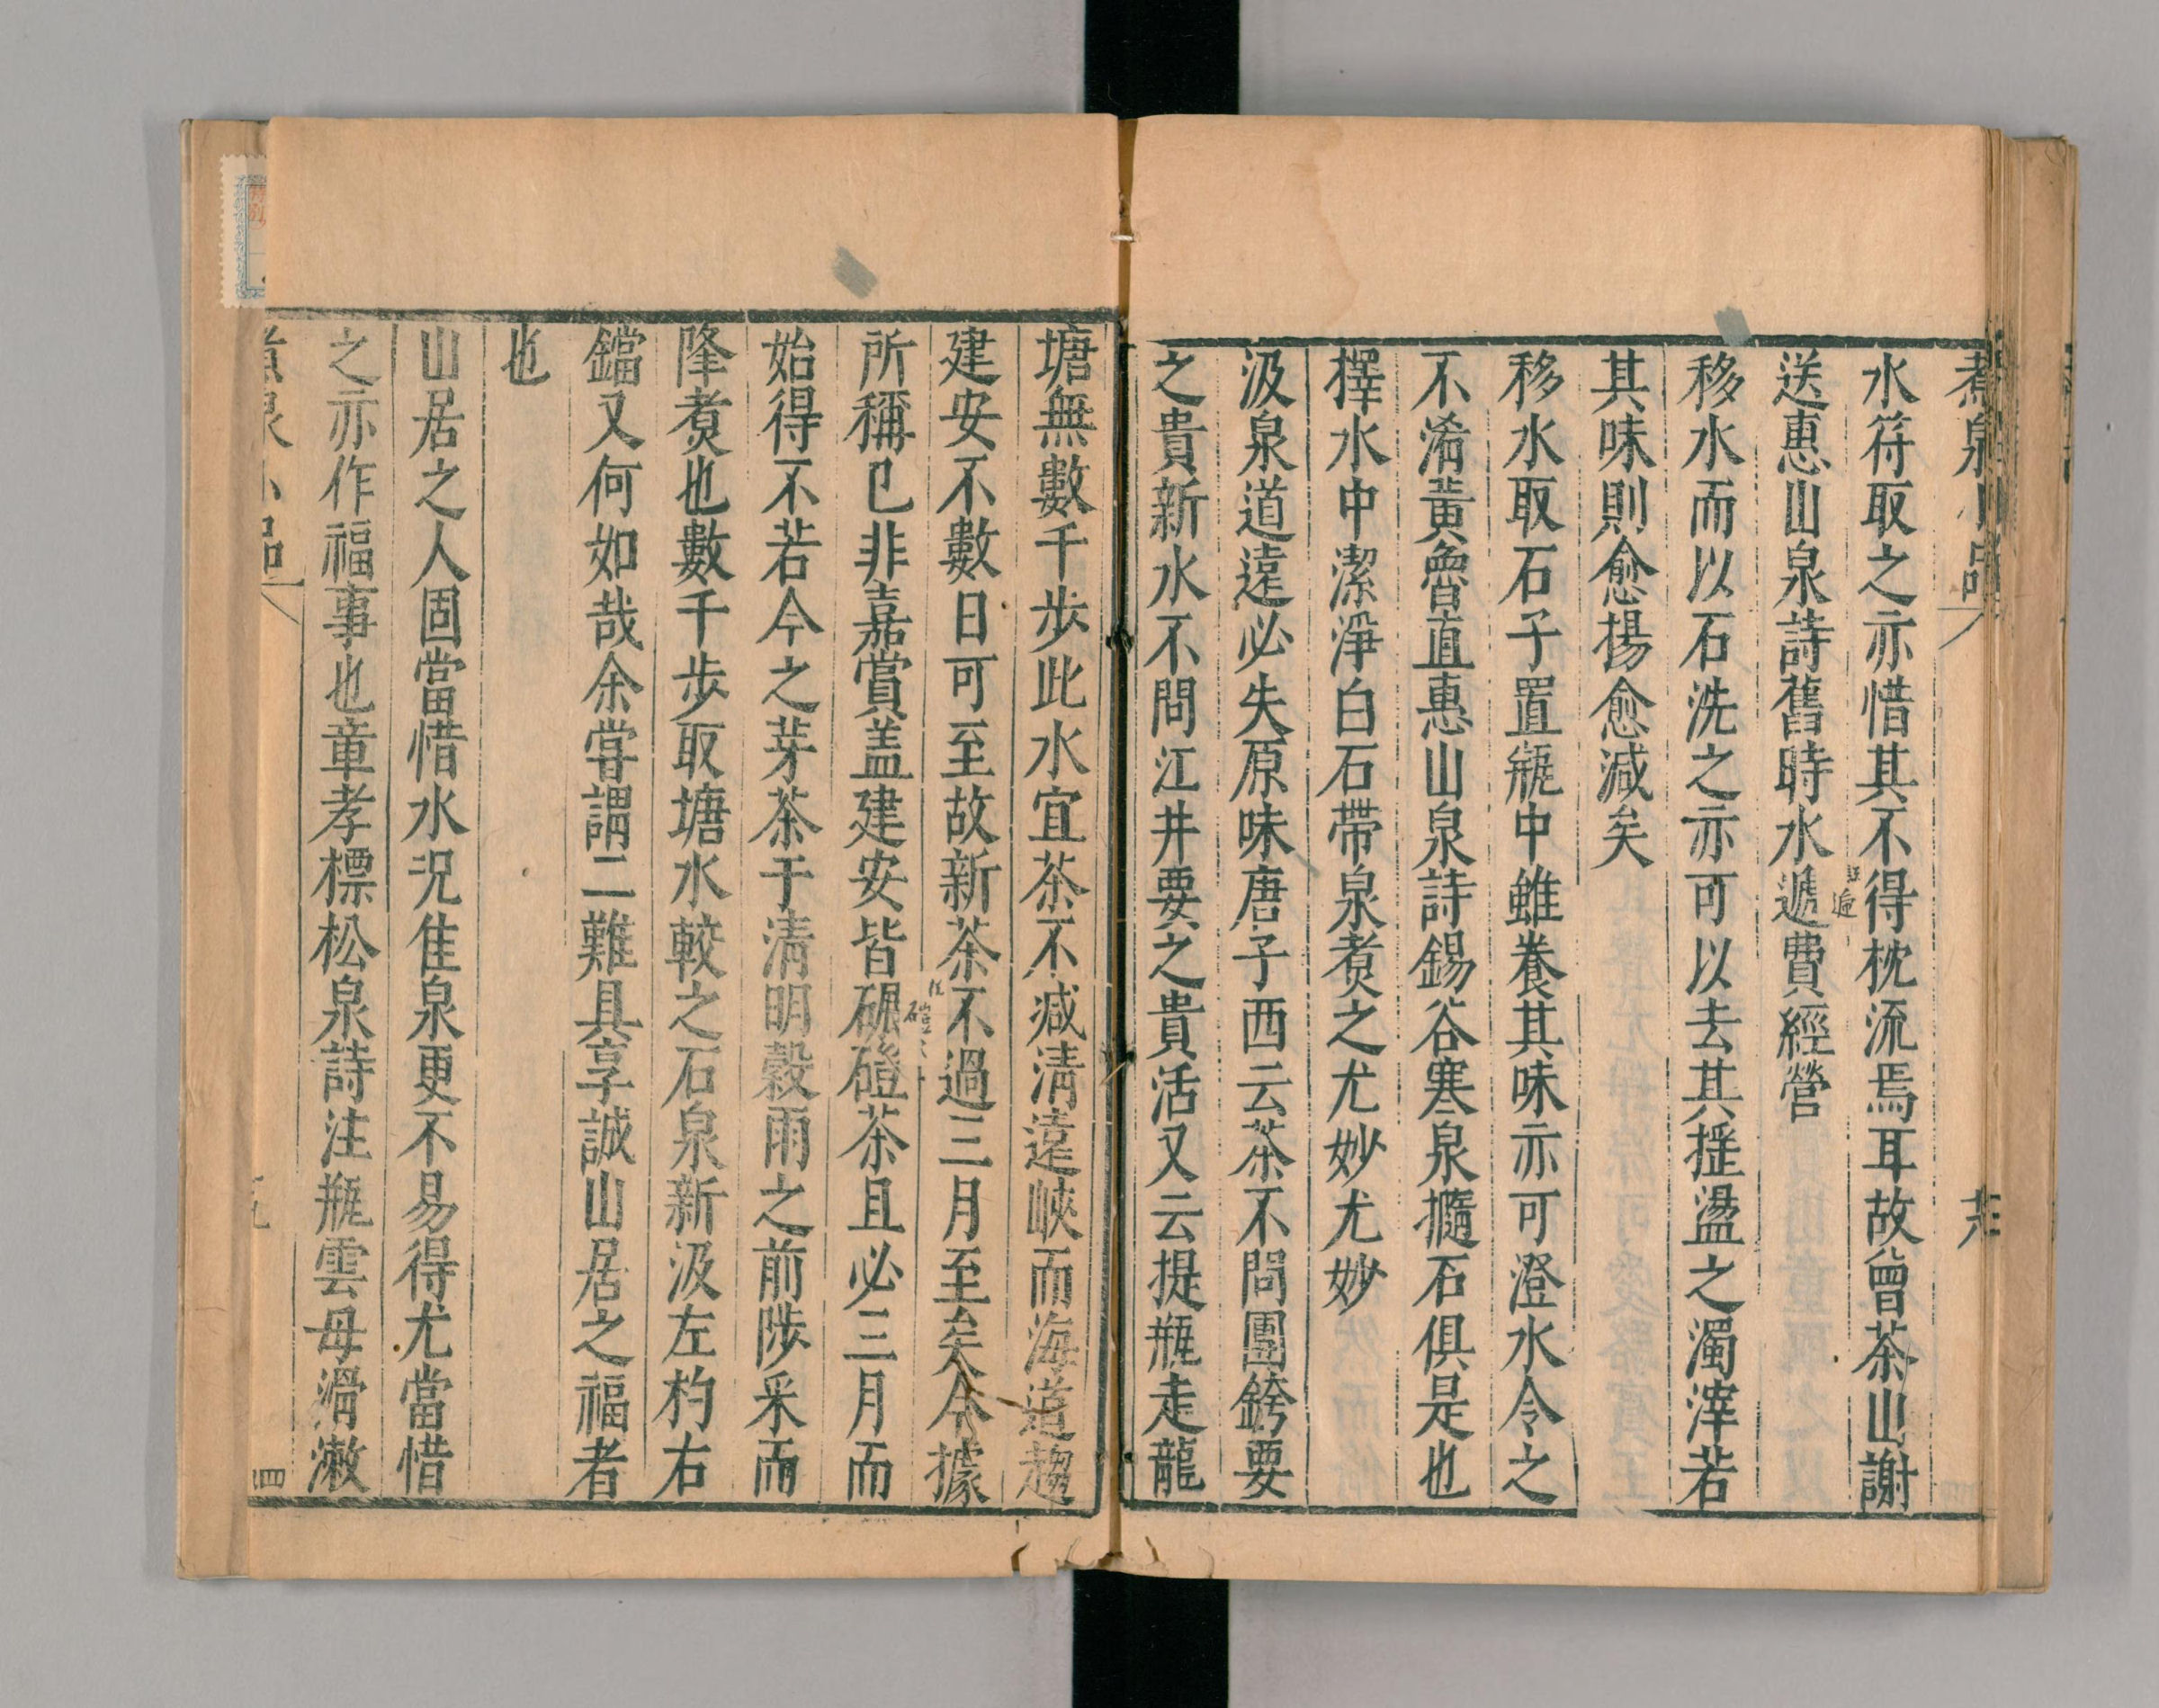 煮泉小品
水符取之亦惜其不得枕流焉耳故曾茶山謝
送惠山泉詩舊時水遞費經營
移水而以石洗之亦可以去其揺盪之濁滓若
其味則愈揚愈減矣
移水取石子置瓶中雖養其味亦可澄水令之
不淆黃魯直惠山泉詩錫谷寒泉撱石俱是也
擇水中潔淨白石帶泉煑之尤妙尤妙
汲泉道遠必失原味唐子西云茶不問團銙要
之貴新水不問江井要之貴活又云提瓶走龍
塘無數千步此水宜茶不減清遠峽而海道趨
建安不數日可至故新茶不過三月至矣今據
所稱已非嘉賞盖建安皆碾磑茶且必三月而
始得不若今之芽茶于清明穀雨之前陟采而
降煑也數千步取塘水較之石泉新汲左杓右
鐺又何如哉余嘗謂二難具享誠山居之福者
也
山居之人固當惜水况佳泉更不易得尤當惜
之亦作福事也章孝標松泉詩注瓶雲母滑漱